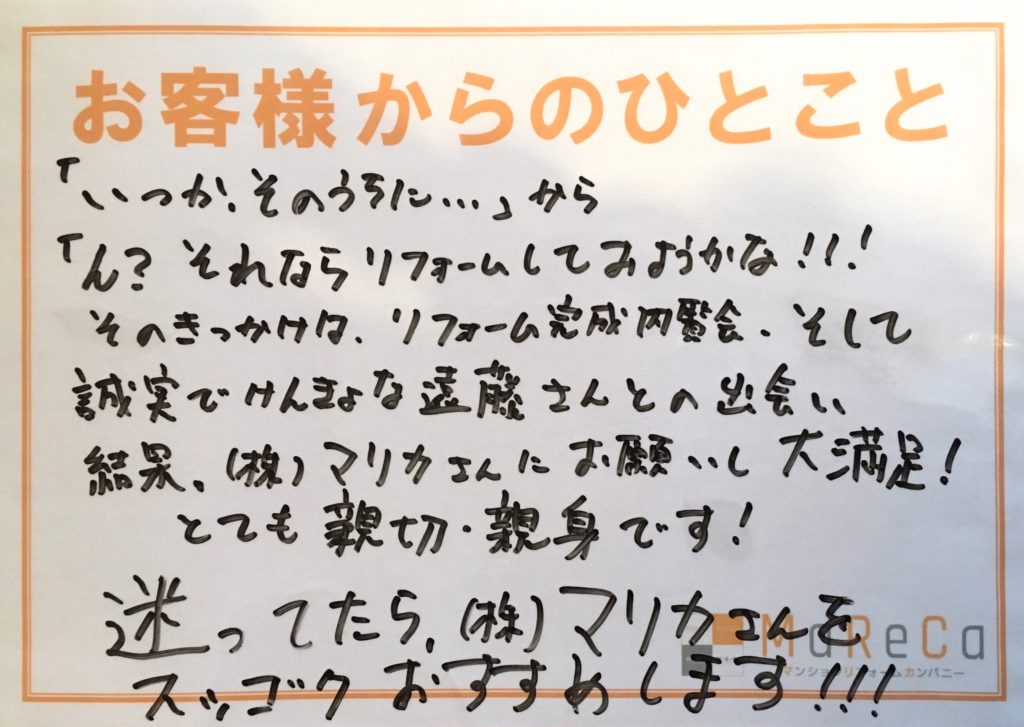 お客様からのひとこと
「いつか、そのうちに…」から
「ん? それならリフォームしておようかな!!!
そのきっかけは、リフォーム完成内覧会、そして
誠実でけんきょな遠藤さんとの出会い
結果、(株)マリカさんにお願いし大満足!
とても親切・親身です!
迷ってたら、(株)マリカさんを
MaReCa
マンションリフォームカンパニー
スッゴクおすすめします!!!